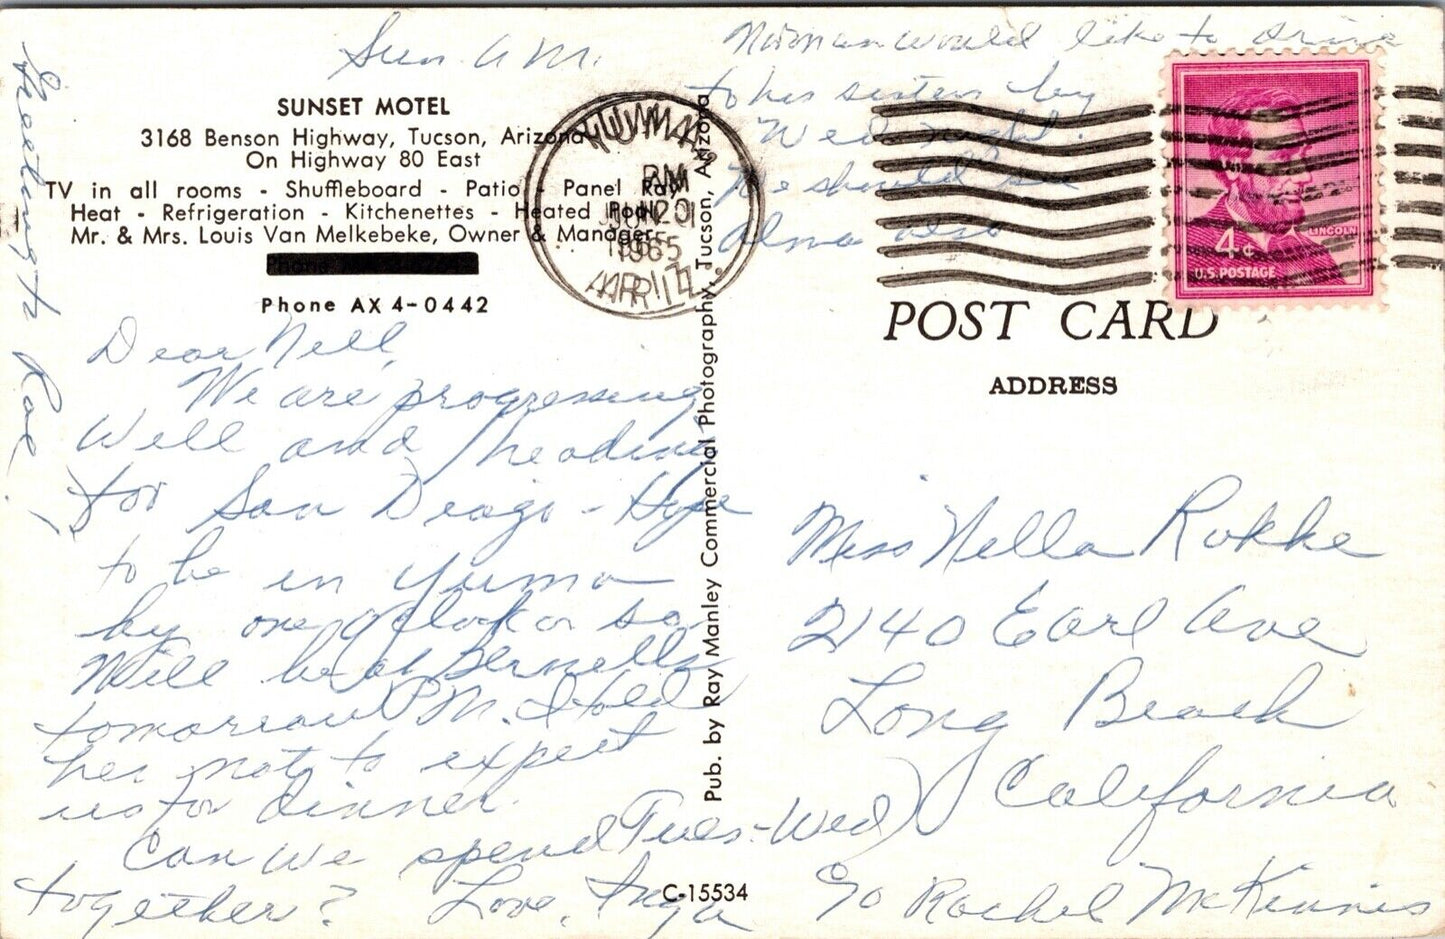 Sun. A.M.
SUNSET MOTEL
3168 Benson Highway, Tucson, Arizona
On Highway 80 East
TV in all rooms - Shuffleboard - Patio - Panel Ray
Heat - Refrigeration - Kitchenettes - Heated Pool
Mr. & Mrs. Louis Van Melkebeke, Owner & Manager
Phone AX 4-0442
Dear Nell,
We are progressing
well and heading
for San Deago - Hope
to be in Yuma
by one o'clock or so
Will be at Bernells
tomorrow P.M. I told
her not to expect
us for dinner.
Can we spend Tues-Wed
together? Love, Inga
Greetings to Rae!
Norman would like to drive
to his sisters by
Wed night.
He should see
Alma also
YUMA
PM
1965
ARIZ.
4¢
LINCOLN
U.S. POSTAGE
POST CARD
ADDRESS
Miss Nella Rokke
2140 Earl Ave
Long Beach
California
c/o Rachel McKinnis
Pub. by Ray Manley Commercial Photography, Tucson, Arizona
C-15534